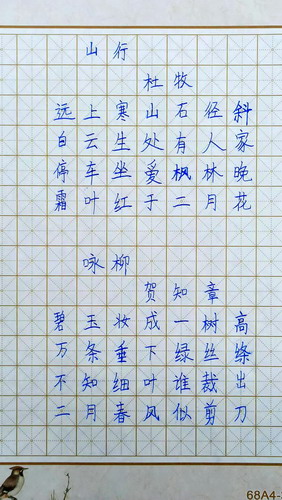 山行
杜牧
远上寒山石径斜
白云生处有人家
停车坐爱枫林晚
霜叶红于二月花
咏柳
贺知章
碧玉妆成一树高
万条垂下绿丝绦
不知细叶谁裁出
二月春风似剪刀
68A4-